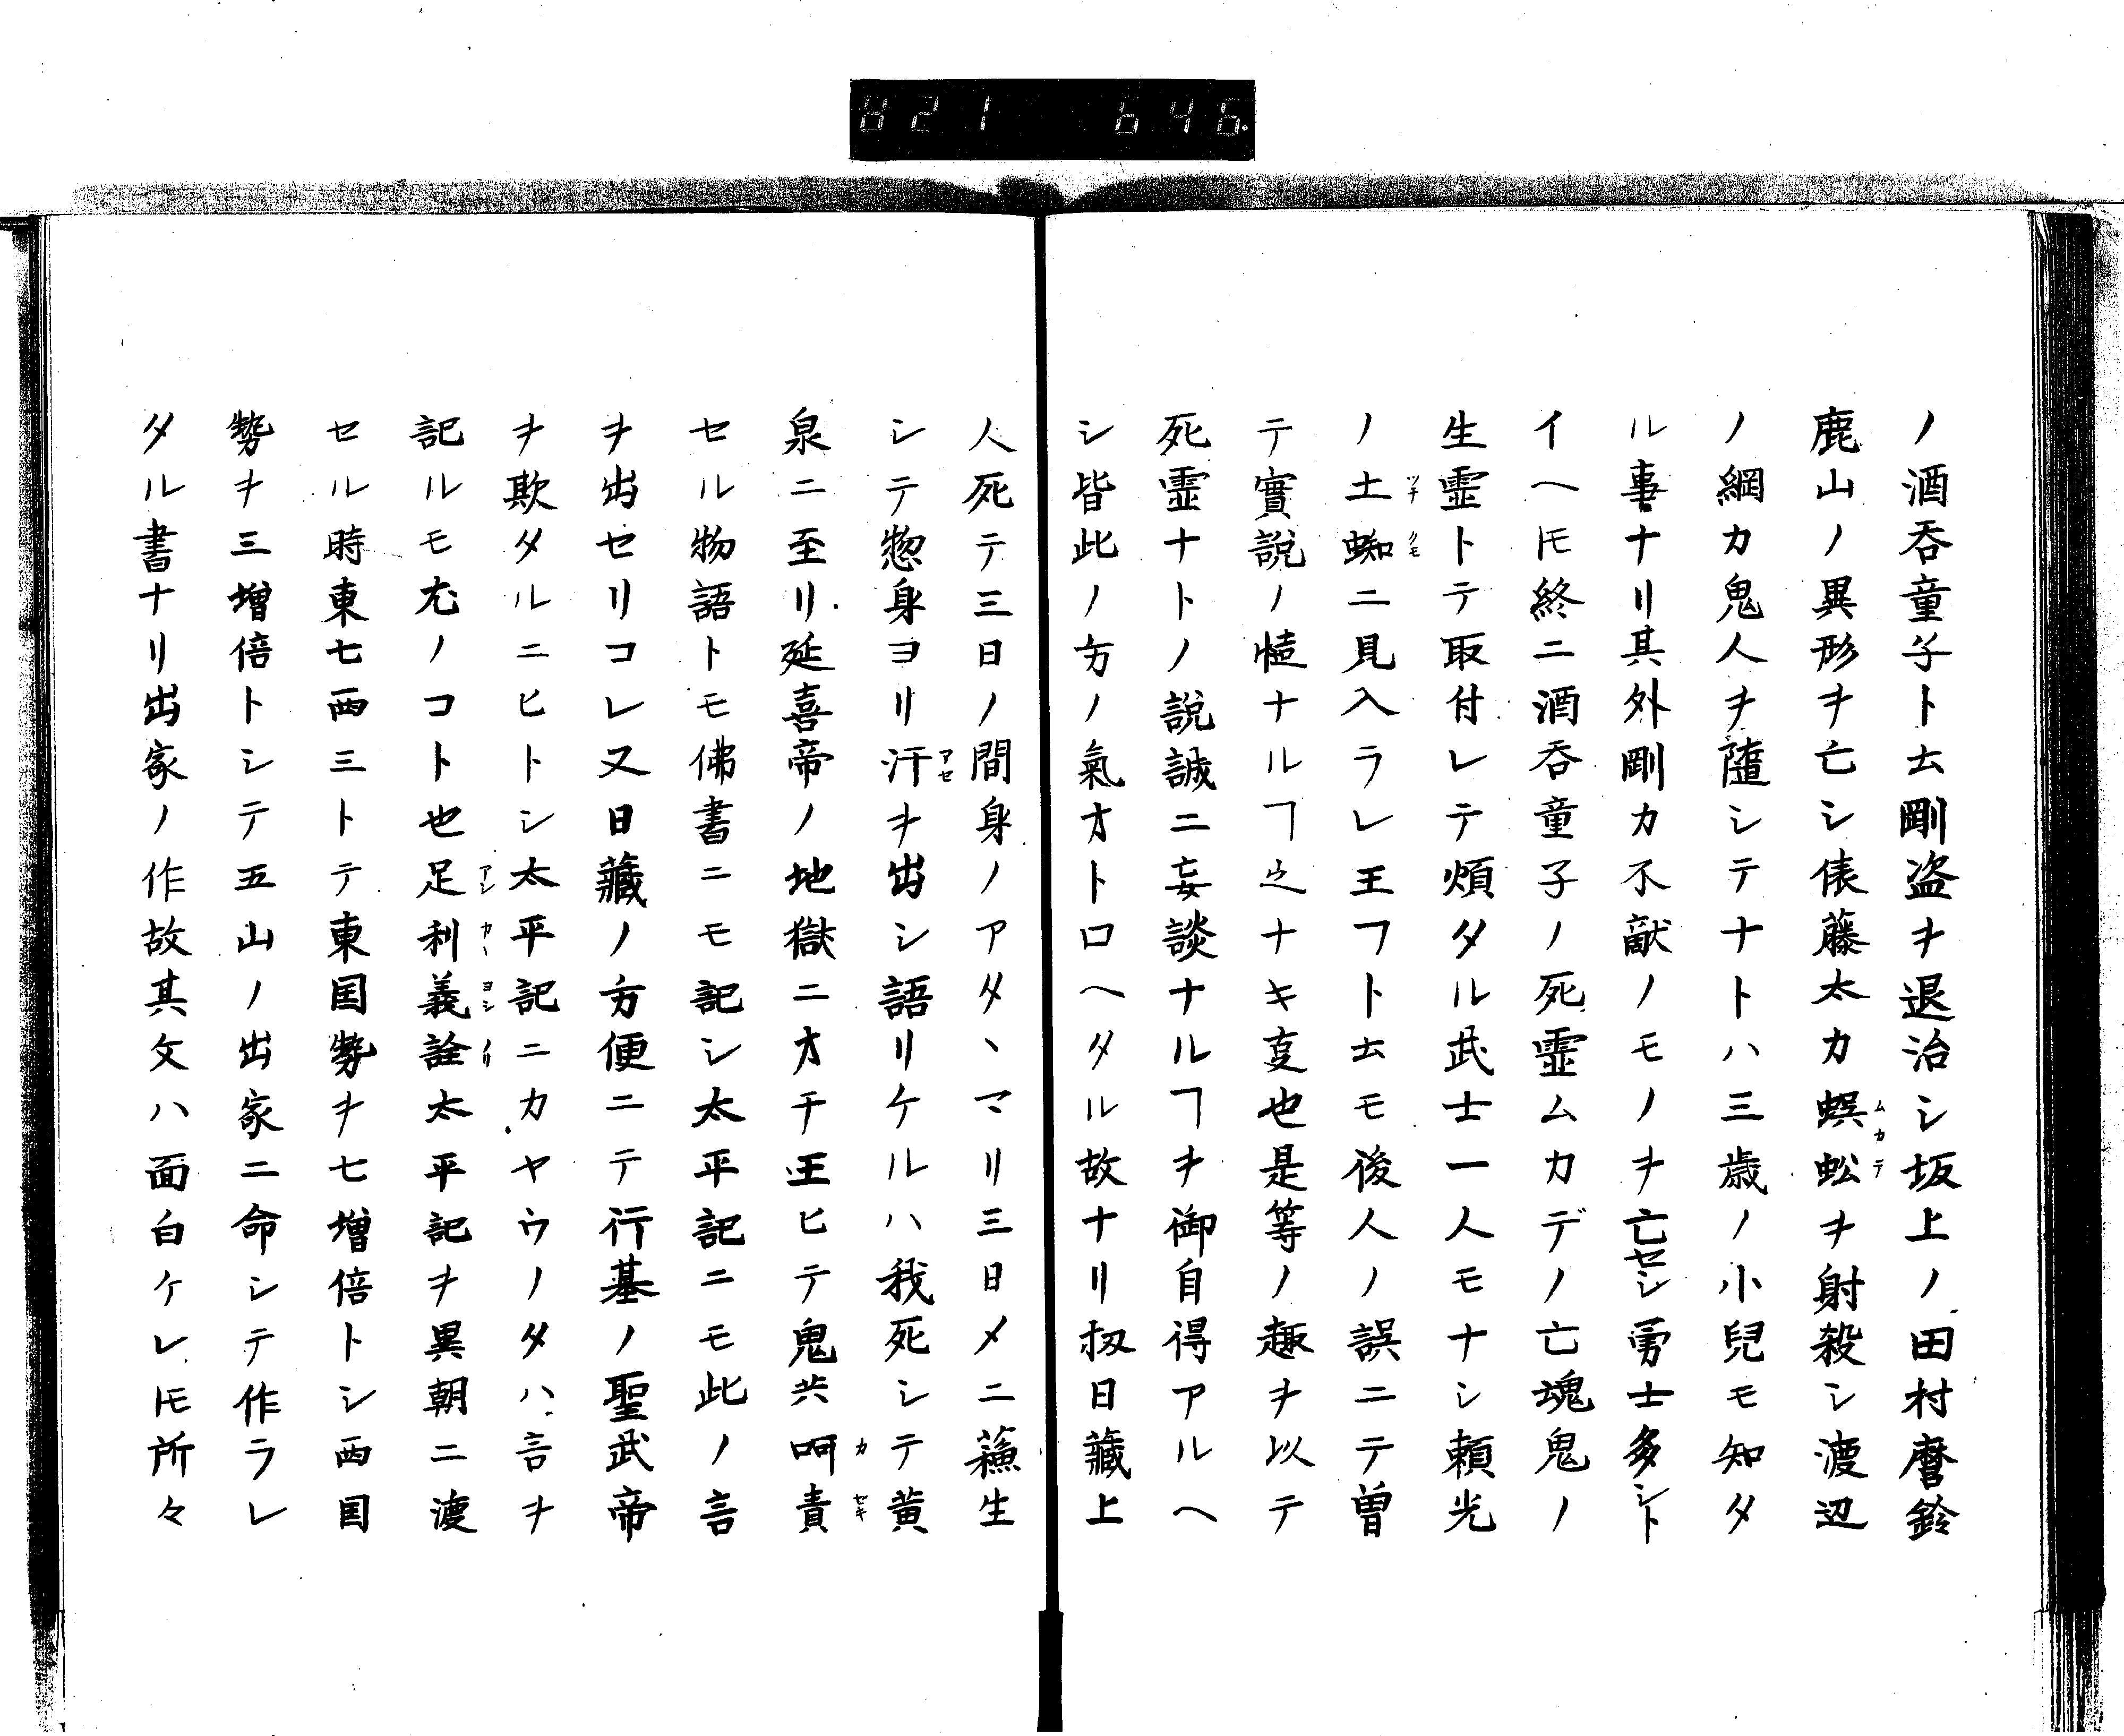 821 646.
ノ酒呑童子ト云剛盗ヲ退治シ坂上ノ田村麿鈴
鹿山ノ異形ヲ亡シ俵藤太カ蜈蚣ヲ射殺シ渡辺
ムカテ
ノ綱カ鬼人ヲ隨シテナトハ三歳ノ小兒モ知タ
ル事ナリ其外剛カ不敵ノモノヲ亡セシ勇士多シト
イヘ𪜈終ニ酒呑童子ノ死霊ムカデノ亡魂鬼ノ
生霊トテ取付レテ煩タル武士一人モナシ頼光
ノ土蜘ニ見入ラレ王フト云モ後人ノ誤ニテ曽
ツチクモ
テ實説ノ慥ナルヿ之ナキ㕝也是等ノ趣ヲ以テ
死霊ナトノ説誠ニ妄談ナルヿヲ御自得アルヘ
シ皆此ノ方ノ氣オトロヘタル故ナリ扨日藏上
人死テ三日ノ間身ノアタヽマリ三日メニ蘓生
シテ惣身ヨリ汗ヲ出シ語リケルハ我死シテ黄
アセ
泉ニ至リ延喜帝ノ地獄ニオチ王ヒテ鬼共呵責
カセキ
セル物語トモ佛書ニモ記シ太平記ニモ此ノ言
ヲ出セリコレ又日藏ノ方便ニテ行基ノ聖武帝
ヲ欺タルニヒトシ太平記ニカヤウノタハ言ヲ
記ルモ尤ノコト也足利義詮太平記ヲ異朝ニ渡
アシカヽヨシノリ
セル時東七西三トテ東国勢ヲ七増倍トシ西国
勢ヲ三増倍トシテ五山ノ出家ニ命シテ作ラレ
タル書ナリ出家ノ作故其文ハ面白ケレ𪜈所々